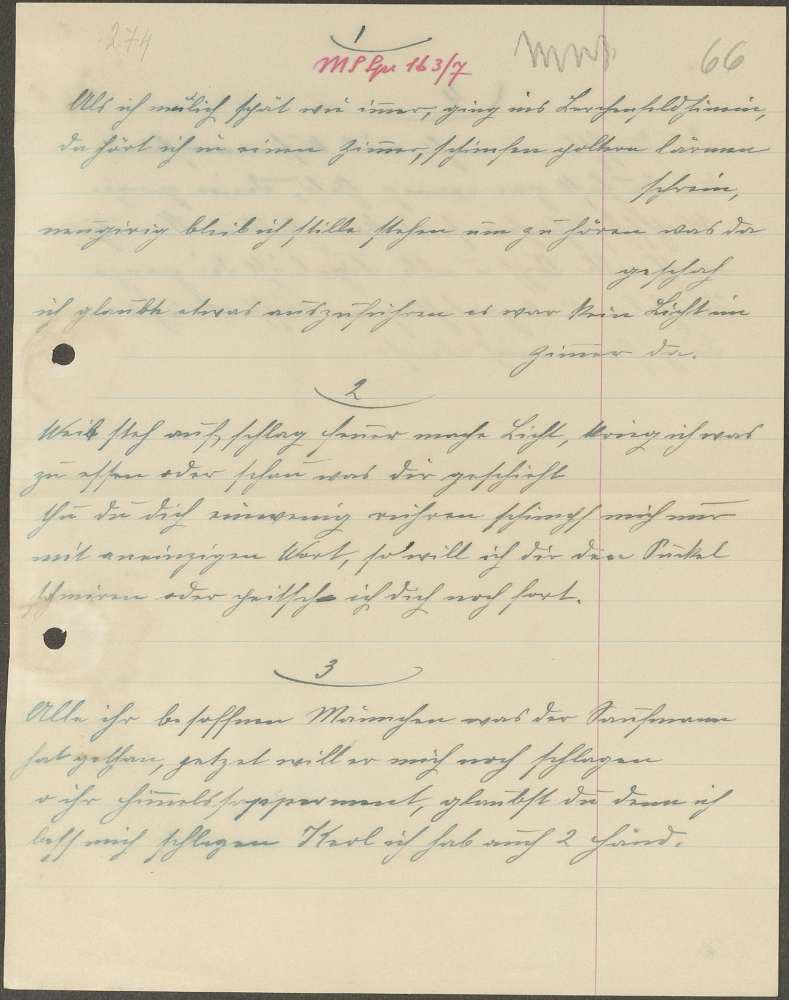 274
1
66
Als ich neulich spät wie immer, ging ins Lerchenfeld hinein,
da hört ich in einem Zimmer, schimfen poltern lärmen
schrein,
neugirig blieb ich stille stehen um zu hören was da
geschah
ich glaubte etwas auszuführen es war kein Licht im
Zimmer da.
2
Weib steh auf, schlag feuer mache Licht, krieg ich was
zu essen oder schau was dir geschieht
thu du dich einwenig rühren schimpf mich nur
mit aneinzigen Wort, so will ich dir den Puckel
schmiren oder peitsche ich dich noch fort.
3
Alle ihr besoffnen Männchen was der Saufmann
hat gethan, jetzet will er mich noch schlagen
o ihr himmelssapperment, glaubst du denn ich
lass mich schlagen Kerl ich hab auch 2 Händ.